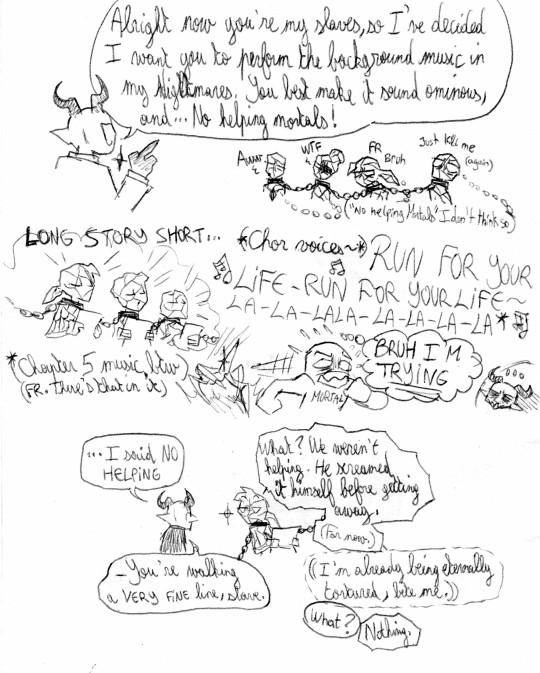 Alright now you're my slaves, so I've decided
I want you to perform the background music in
my Nightmares. You best make it sound ominous,
and... No helping mortals!
Awwr
WTF
FR
Bruh
Just kill me
(again)
("No helping Mortals" I don't think so)
LONG STORY SHORT...
*(Chor voices~*)
RUN FOR YOUR
LIFE~RUN FOR YOUR LIFE~
LA-LA-LALA-LA-LA-LA-LA*
*Chapter 5 music btw
(FR. There's that in it)
BRUH I'M
TRYING
MORTAL
... I said NO
HELPING
What? We weren't
helping. He screamed
it himself before getting
away.
(For now.)
-You're walking
a VERY FINE line, slave.
((I'm already being eternally
tortured, bite me.))
What?
Nothing.